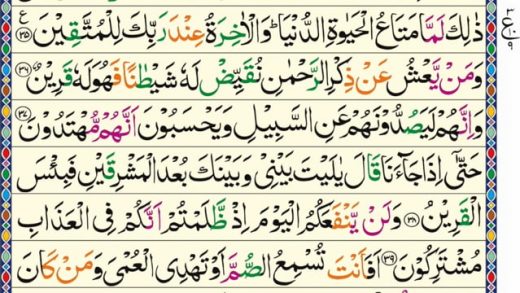 ذٰلِكَ لَمَّا مَتَاعُ الْحَيٰوةِ الدُّنْيَا ؕ وَالْاٰخِرَةُ عِنْدَ رَبِّكَ لِلْمُتَّقِيْنَ ﴿۳۵﴾ ع
وَمَنْ يَّعْشُ عَنْ ذِكْرِ الرَّحْمٰنِ نُقَيِّضْ لَهٗ شَيْطٰنًا فَهُوَ لَهٗ قَرِيْنٌ ﴿۳۶﴾
وَاِنَّهُمْ لَيَصُدُّوْنَهُمْ عَنِ السَّبِيْلِ وَيَحْسَبُوْنَ اَنَّهُمْ مُّهْتَدُوْنَ ﴿۳۷﴾
حَتّٰۤى اِذَا جَآءَنَا قَالَ يٰلَيْتَ بَيْنِيْ وَبَيْنَكَ بُعْدَ الْمَشْرِقَيْنِ فَبِئْسَ
الْقَرِيْنُ ﴿۳۸﴾ وَلَنْ يَّنْفَعَكُمُ الْيَوْمَ اِذْ ظَّلَمْتُمْ اَنَّكُمْ فِي الْعَذَابِ
مُشْتَرِكُوْنَ ﴿۳۹﴾ اَفَاَنْتَ تُسْمِعُ الصُّمَّ اَوْ تَهْدِي الْعُمْيَ وَمَنْ كَانَ